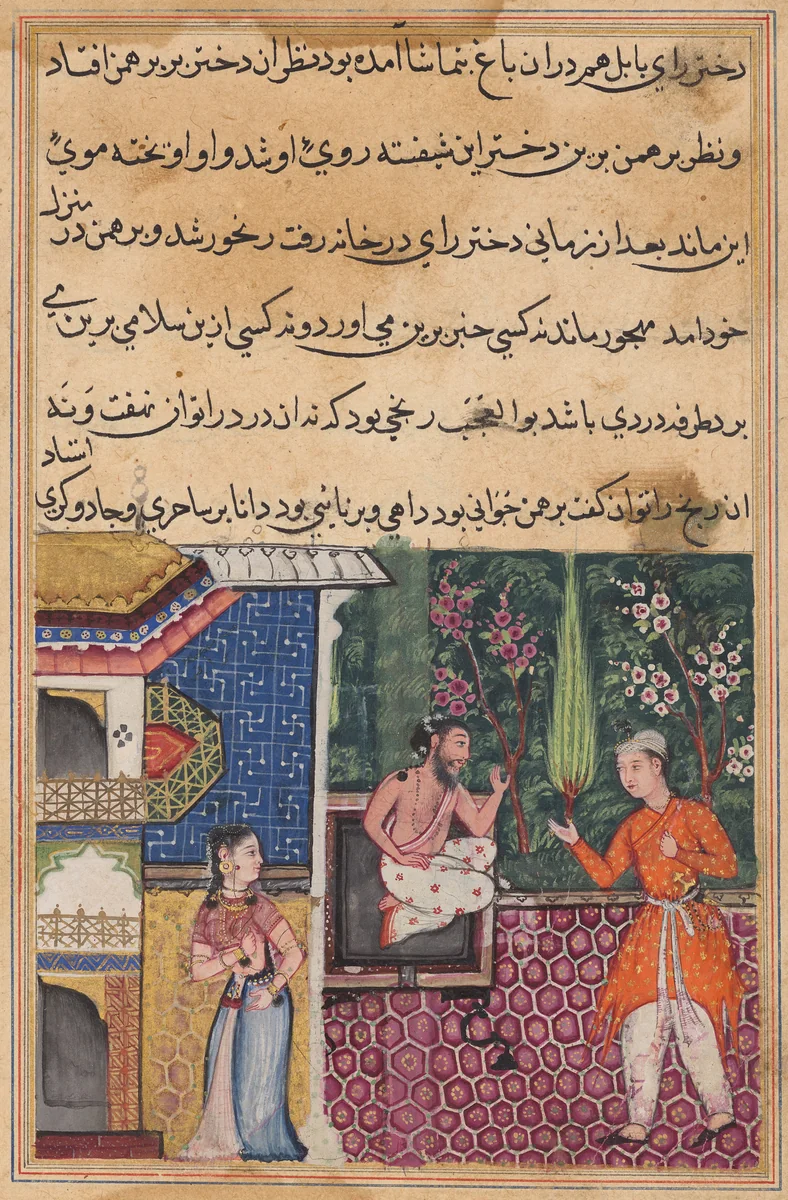 دختر رای بابل هم دران باغ بتماشا آمده بود نظر ان دختر بر برهمن افتاد
و نظر برهمن برین دختر این شیفته روی او شد و او اویخته موی
این ماند بعد از زمانی دختر رای در خانه رفت رنجور شد و برهمن در منزل
خود امد مهجور ماند نه کسی خبر برین می اورد و نه کسی ازین سلامی برین می
برد طرفه دردی باشد بوالعجب رنجی بود که نه ان درد را توان نهفت و نه
ان رنج را توان گفت برهمن جوانی بود داهی و برنائی بود دانا بر ساحری و جادوکری استاد